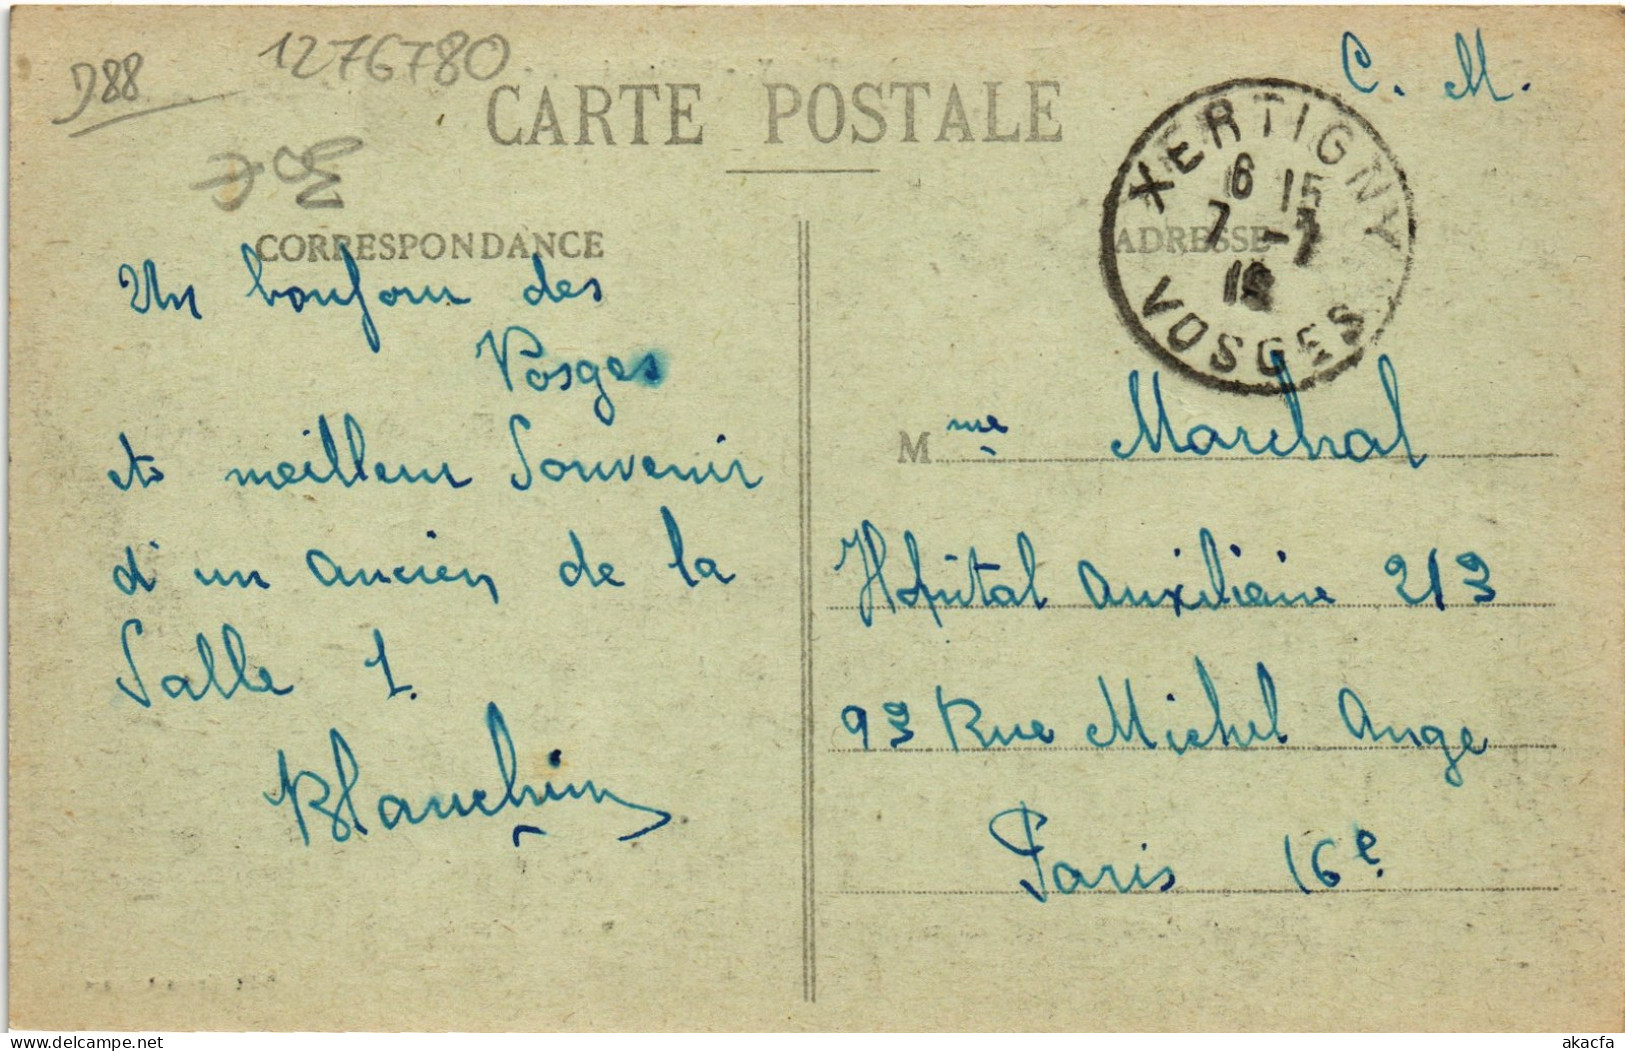 D88
1276780
CARTE POSTALE
C. M.
XERTIGNY
6 15
7 -7
VOSGES
CORRESPONDANCE
ADRESSE
Un bonjour des
Vosges
et meilleur Souvenir
d'un ancien de la
Salle 1.
Blanchin
Mme Marchal
Hôpital Auxiliaire 213
93 Rue Michel Ange
Paris 16e
delcampe.net
akacfa